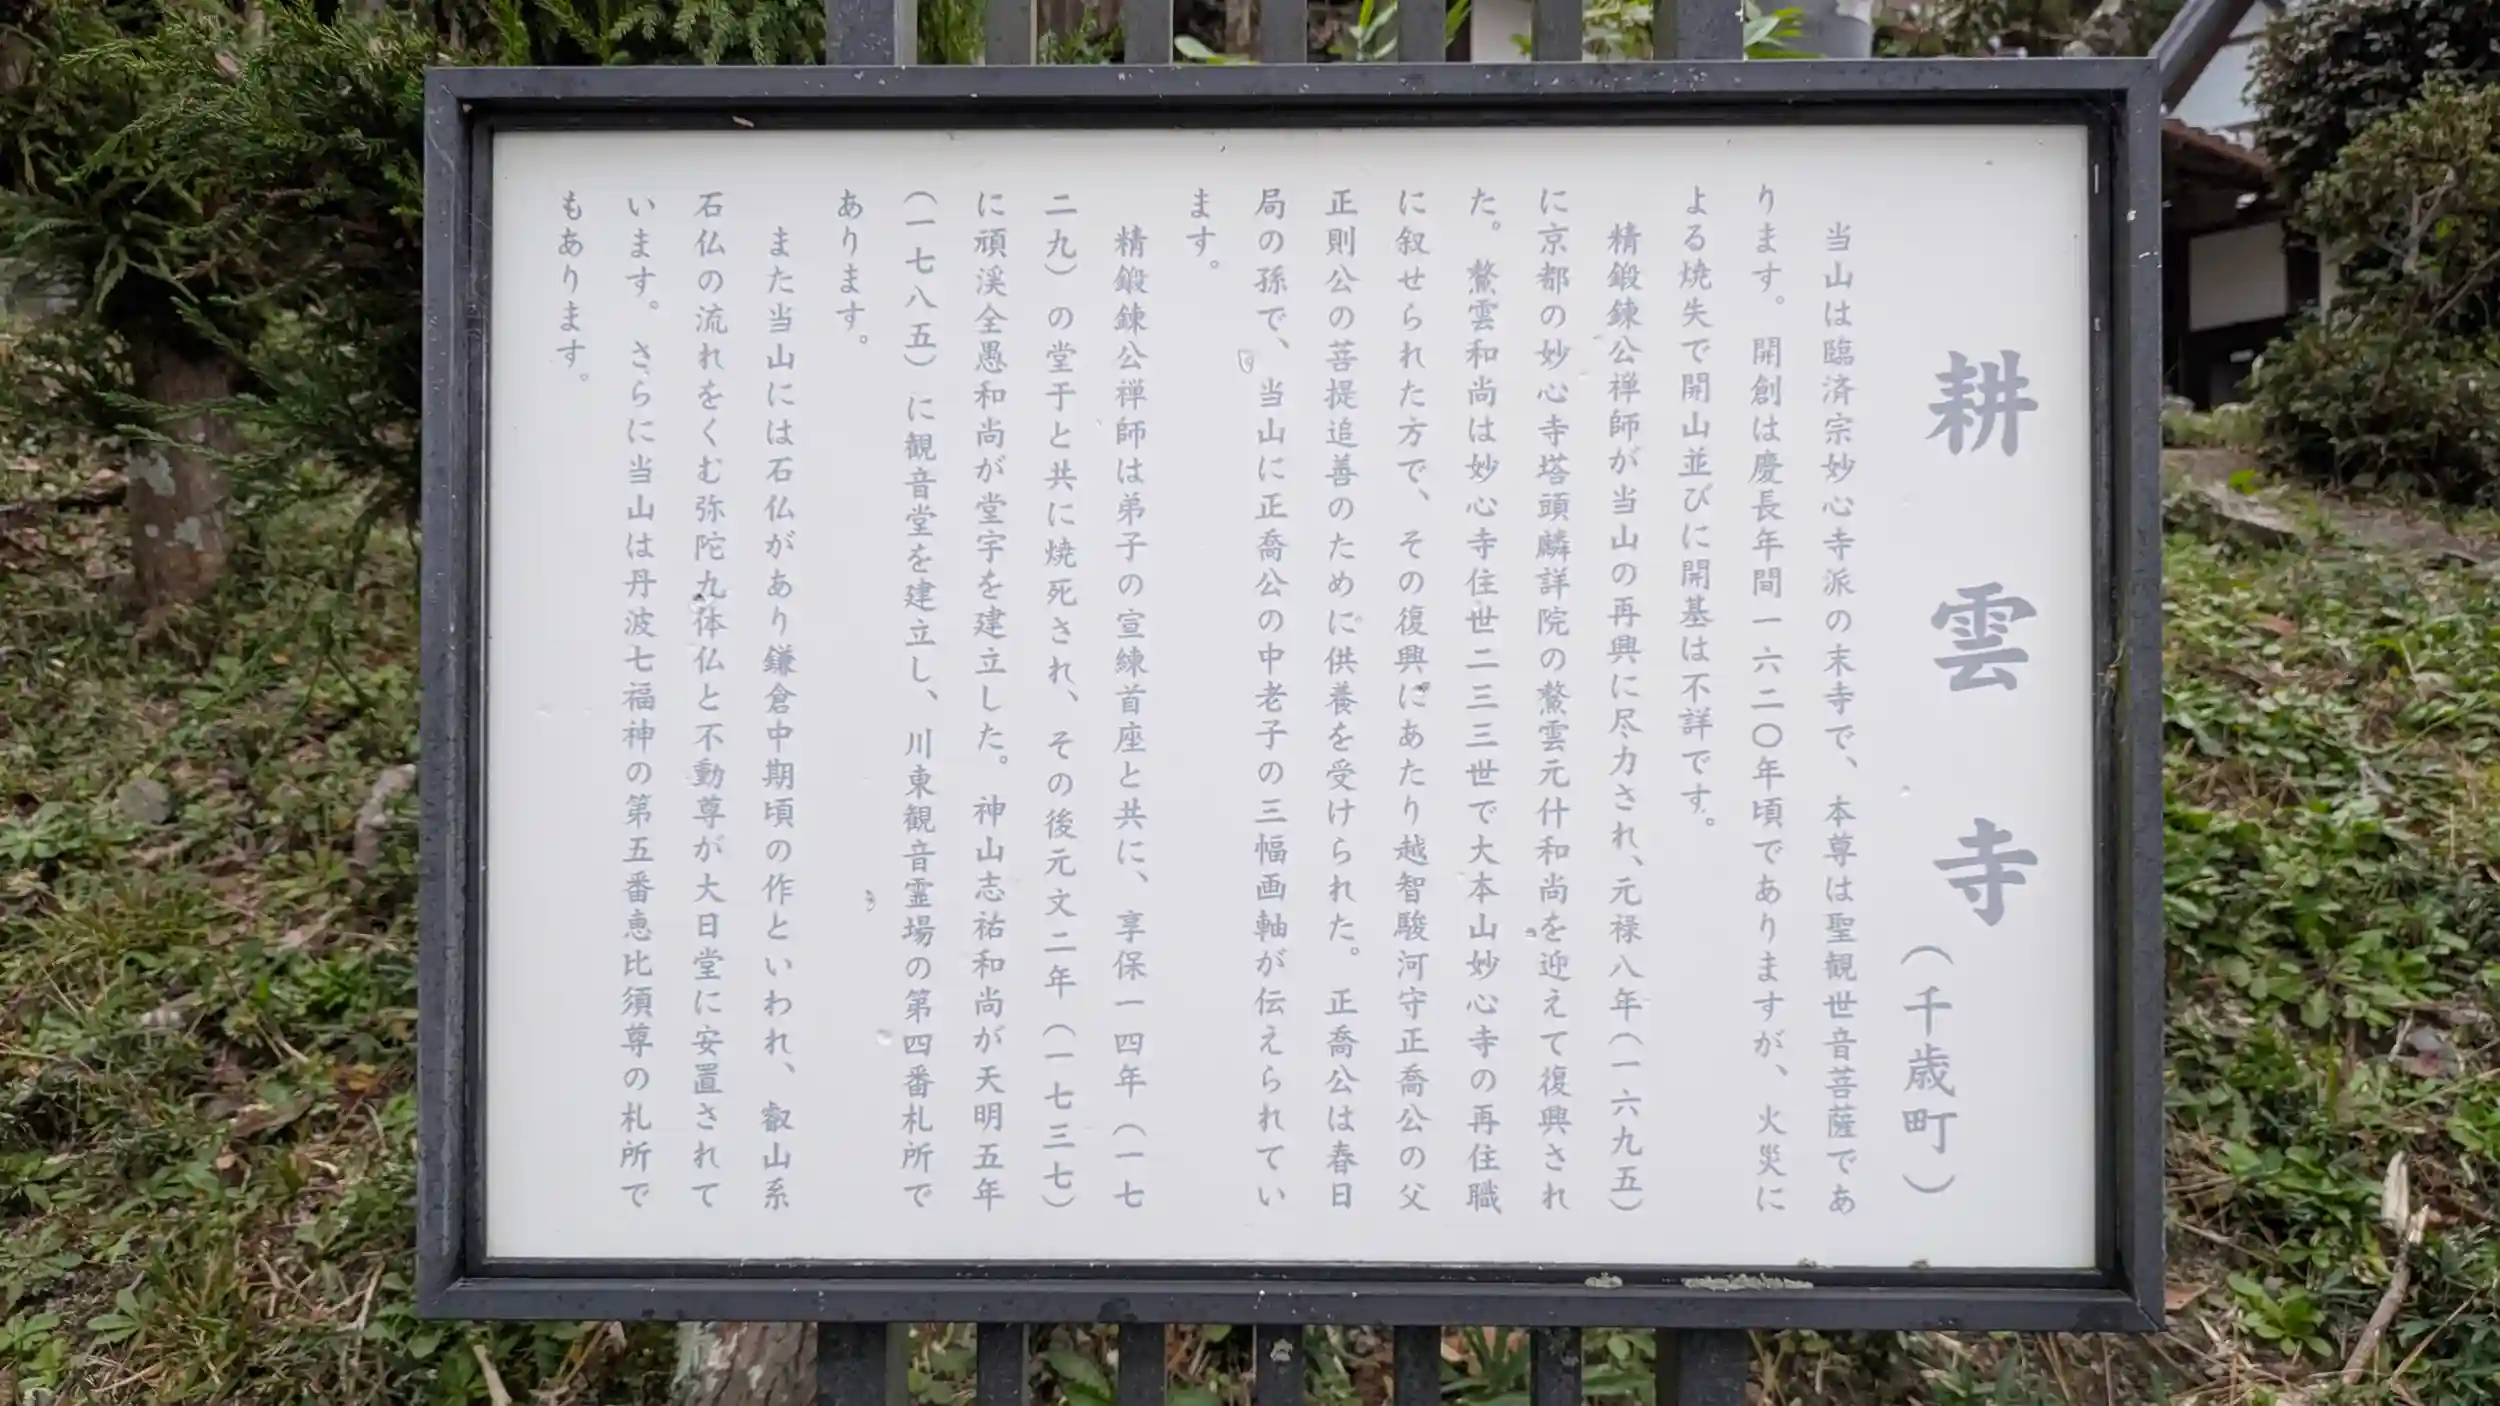 耕雲寺(千歳町)
当山は臨済宗妙心寺派の末寺で、本尊は聖観世音菩薩であ
ります。開創は慶長年間一六二〇年頃でありますが、火災に
よる焼失で開山並びに開基は不詳です。
精鍛錬公禅師が当山の再興に尽力され、元禄八年(一六九五)
に京都の妙心寺塔頭麟詳院の鰲雲元什和尚を迎えて復興され
た。鰲雲和尚は妙心寺住世二三三世で大本山妙心寺の再住職
に叙せられた方で、その復興にあたり越智駿河守正喬公の父
正則公の菩提追善のために供養を受けられた。正喬公は春日
局の孫で、当山に正喬公の中老子の三幅画軸が伝えられてい
ます。
精鍛錬公禅師は弟子の宣練首座と共に、享保一四年(一七
二九)の堂干と共に焼死され、その後元文二年(一七三七)
に頑溪全愚和尚が堂宇を建立した。神山志祐和尚が天明五年
(一七八五)に観音堂を建立し、川東観音霊場の第四番札所で
あります。
また当山には石仏があり鎌倉中期頃の作といわれ、叡山系
石仏の流れをくむ弥陀九体仏と不動尊が大日堂に安置されて
います。さらに当山は丹波七福神の第五番恵比須尊の札所で
もあります。